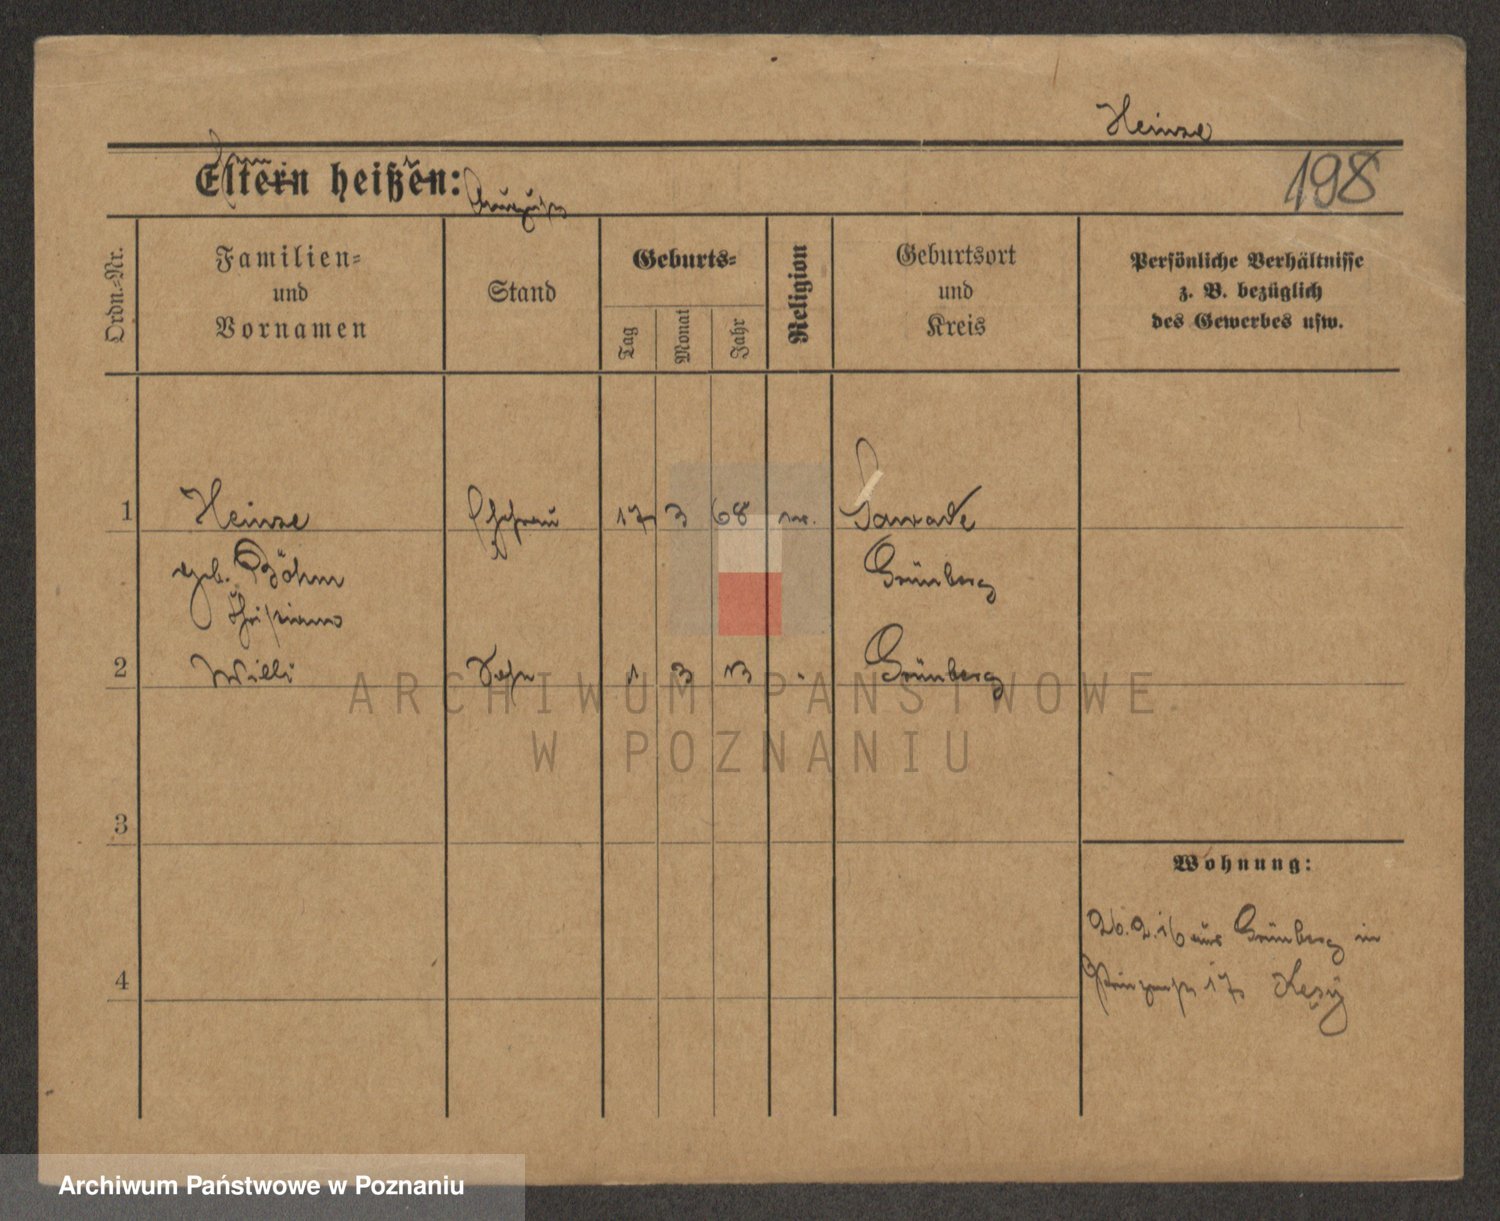 Heinze
198
Eltern heißen:
Ordn.-Nr.
Familien-
und
Vornamen
Stand
Geburts-
Tag
Monat
Jahr
Religion
Geburtsort
und
Kreis
Persönliche Verhältnisse
z. B. bezüglich
des Gewerbes usw.
1
Heinze
Ehefrau
17
3
68
Sawade
geb. Böhm
Grünberg
Christiane
2
Willi
Sohn
1
3
13
Grünberg
ARCHIWUM PAŃSTWOWE
W POZNANIU
3
Wohnung:
26.2.16 aus Grünberg in
4
17
Archiwum Państwowe w Poznaniu